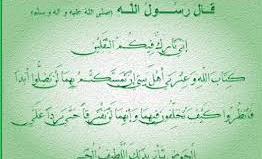 قال رسول الله (صلى الله عليه و اله وسلم)
إني تارك فيكم الثقلين
كتاب الله وعترتي أهل بيتي إن تمسكتم بهما لن تضلوا أبدا
فانظروا كيف تخلفون فيهما وإنهما لن يفترقا حتى يردا علي
الحوض